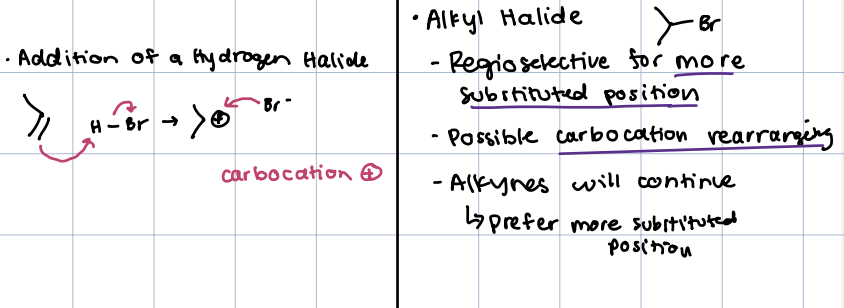 · Addition of a Hydrogen Halide
H - Br → ⊕ Br⁻
carbocation ⊕
· Alkyl Halide
Br
- Regioselective for more
substituted position
- Possible carbocation rearranging
- Alkynes will continue
↳ prefer more substituted
position